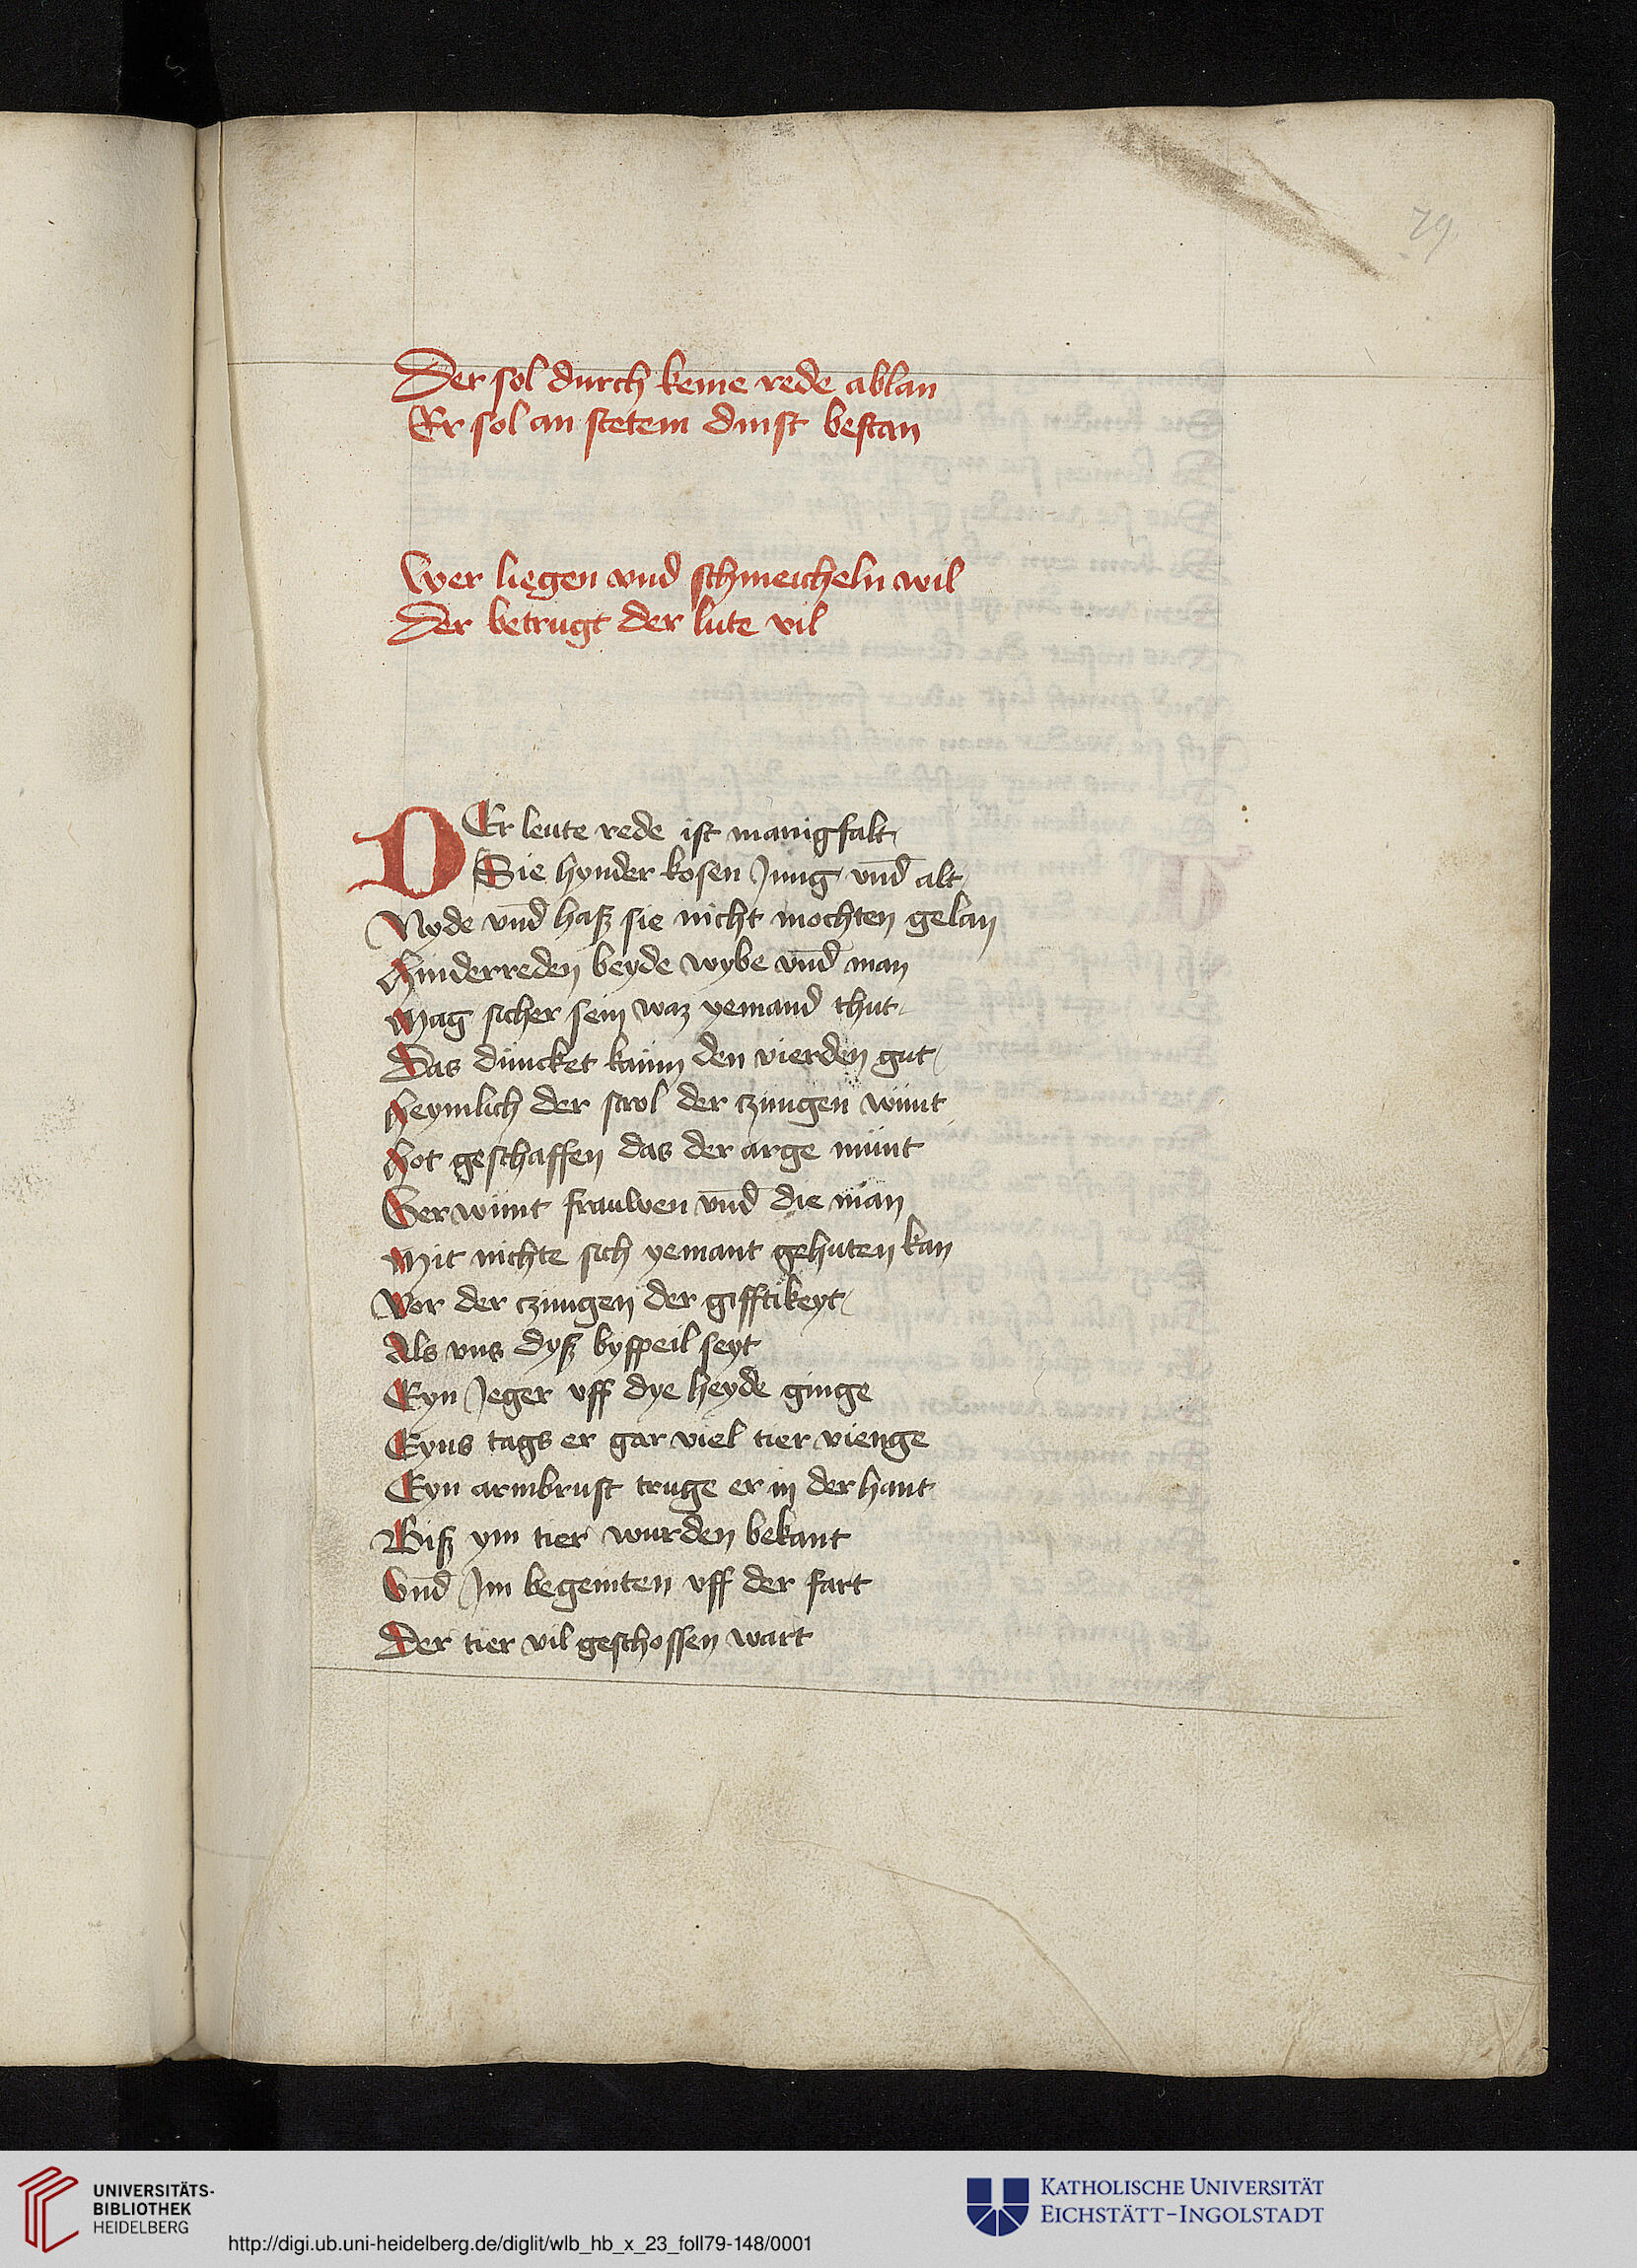 79
Der sol durch keine rede ablan
Er sol an stetem dinst bestan
Wer liegen vnd schmeicheln wil
Der betrugt der lute vil
DEr leute rede ist manigfalt
Sie hynder kosen Jung vnd̄ alt
Nyde vnd̄ haß sie nicht mochten gelan
Hinderreden beyde wybe vnd̄ man
Mag sicher sein waz yemand thut
Das duncket kaum den vierden gut
Heymlich der strol der czungen wunt
Hot geschaffen das der arge munt
Verwunt frauwen vnd̄ die man
Mit nichte sich yemant gehuten kan
Vor der czungen der gifftikeyt
Als vns dyß byspeil seyt
Eyn Jeger vff dye heyde ginge
Eyns tags er gar viel tier vienge
Eyn armbrust truge er in der hant
Biß ym tier wurden bekant
Vnd̄ Im begeinten vff der fart
Der tier vil geschossen wart
UNIVERSITÄTS-
BIBLIOTHEK
HEIDELBERG
http://digi.ub.uni-heidelberg.de/diglit/wlb_hb_x_23_foll79-148/0001
KATHOLISCHE UNIVERSITÄT
EICHSTÄTT-INGOLSTADT